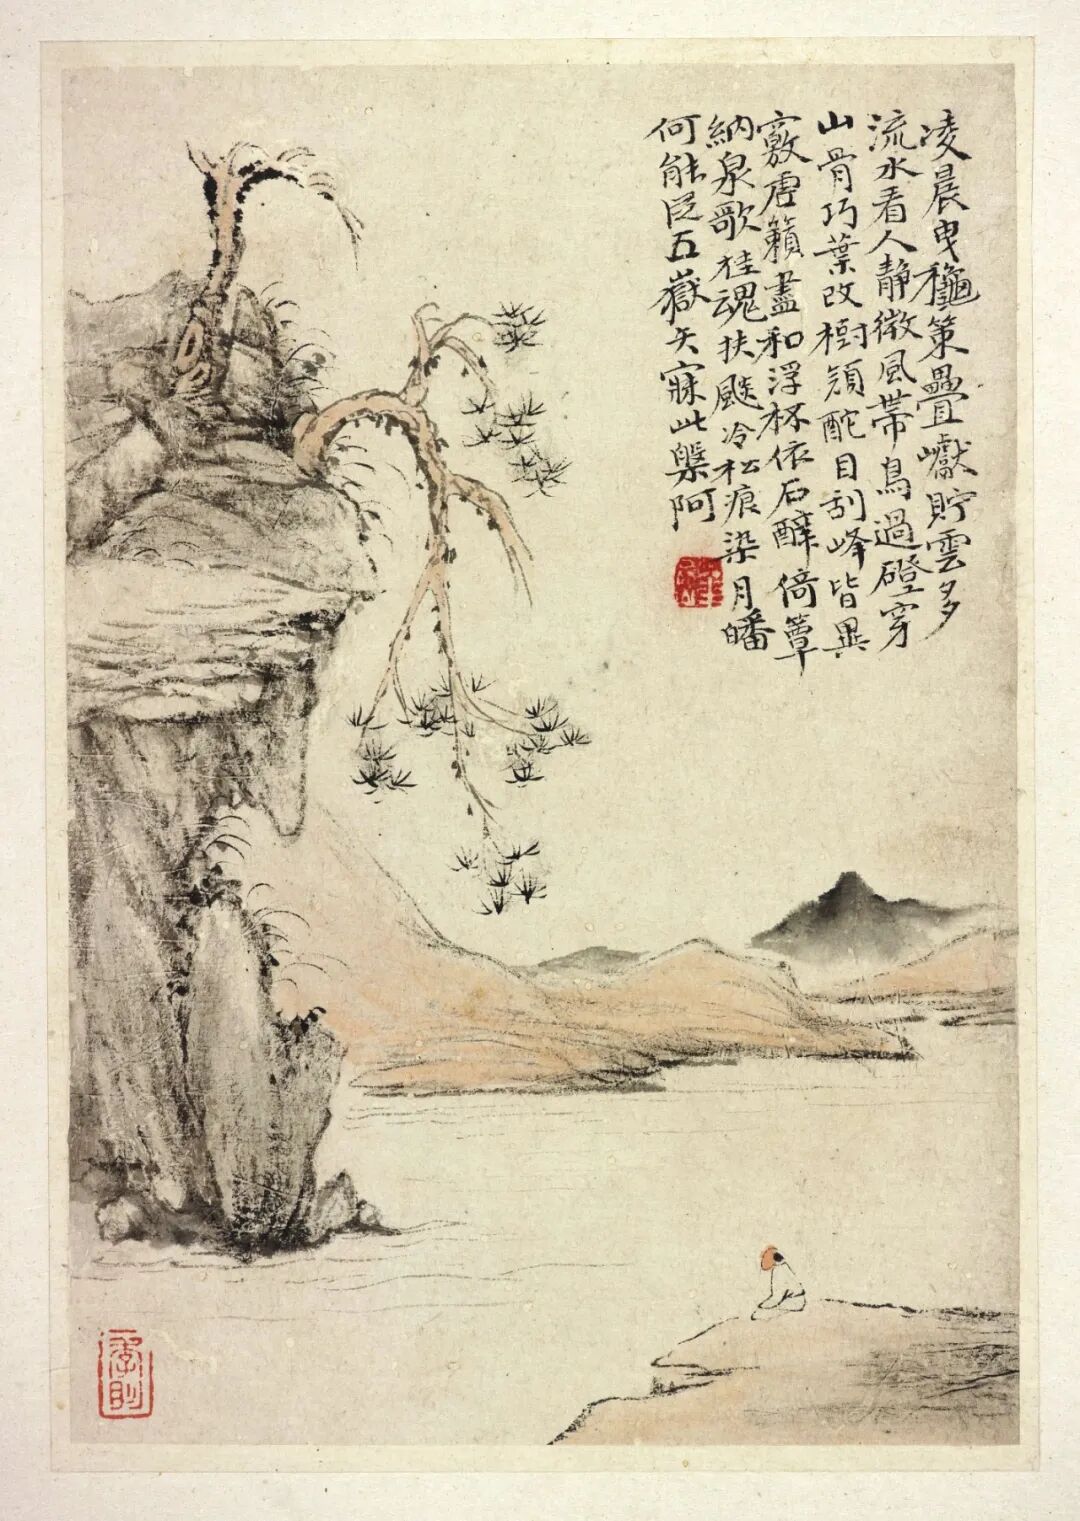 凌晨曳龝策疊巘貯雲多
流水看人靜微風帶鳥過磴穿
山骨巧葉改樹頭酡目刮峰皆異
竅敷虛籟盡和浮杯依石醉倚簟
納泉歌狂魂扶颷冷松痕染月皤
何能臣五嶽矢寐此槃阿